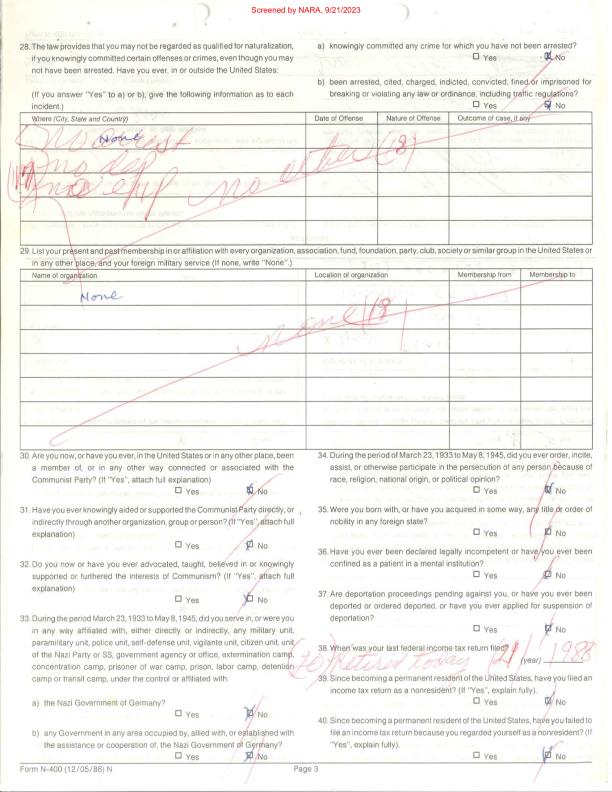 Screened by NARA, 9/21/2023
28. The law provides that you may not be regarded as qualified for naturalization,
if you knowingly committed certain offenses or crimes, even though you may
not have been arrested. Have you ever, in or outside the United States:
(If you answer "Yes" to a) or b), give the following information as to each
incident.)
a) knowingly committed any crime for which you have not been arrested?
☐ Yes ☒ No
b) been arrested, cited, charged, indicted, convicted, fined or imprisoned for
breaking or violating any law or ordinance, including traffic regulations?
☐ Yes ☒ No
Where (City, State and Country) Date of Offense Nature of Offense Outcome of case, if any
None
No arrest
no dep
no other (18)
29. List your present and past membership in or affiliation with every organization, association, fund, foundation, party, club, society or similar group in the United States or
in any other place, and your foreign military service (If none, write "None".)
Name of organization Location of organization Membership from Membership to
None
none (18
30. Are you now, or have you ever, in the United States or in any other place, been
a member of, or in any other way connected or associated with the
Communist Party? (If "Yes", attach full explanation)
☐ Yes ☒ No
31. Have you ever knowingly aided or supported the Communist Party directly, or
indirectly through another organization, group or person? (If "Yes", attach full
explanation)
☐ Yes ☒ No
32. Do you now or have you ever advocated, taught, believed in or knowingly
supported or furthered the interests of Communism? (If "Yes", attach full
explanation)
☐ Yes ☒ No
33. During the period March 23, 1933 to May 8, 1945, did you serve in, or were you
in any way affiliated with, either directly or indirectly, any military unit,
paramilitary unit, police unit, self-defense unit, vigilante unit, citizen unit, unit
of the Nazi Party or SS, government agency or office, extermination camp,
concentration camp, prisoner of war camp, prison, labor camp, detention
camp or transit camp, under the control or affiliated with:
a) the Nazi Government of Germany?
☐ Yes ☒ No
b) any Government in any area occupied by, allied with, or established with
the assistance or cooperation of, the Nazi Government of Germany?
☐ Yes ☒ No
34. During the period of March 23, 1933 to May 8, 1945, did you ever order, incite,
assist, or otherwise participate in the persecution of any person because of
race, religion, national origin, or political opinion?
☐ Yes ☒ No
35. Were you born with, or have you acquired in some way, any title or order of
nobility in any foreign state?
☐ Yes ☒ No
36. Have you ever been declared legally incompetent or have you ever been
confined as a patient in a mental institution?
☐ Yes ☒ No
37. Are deportation proceedings pending against you, or have you ever been
deported or ordered deported, or have you ever applied for suspension of
deportation?
☐ Yes ☒ No
38. When was your last federal income tax return filed?
(20) retired today (21) (year) 1988
39. Since becoming a permanent resident of the United States, have you filed an
income tax return as a nonresident? (If "Yes", explain fully).
☐ Yes ☒ No
40. Since becoming a permanent resident of the United States, have you failed to
file an income tax return because you regarded yourself as a nonresident? (If
"Yes", explain fully).
☐ Yes ☒ No
Form N-400 (12/05/86) N Page 3